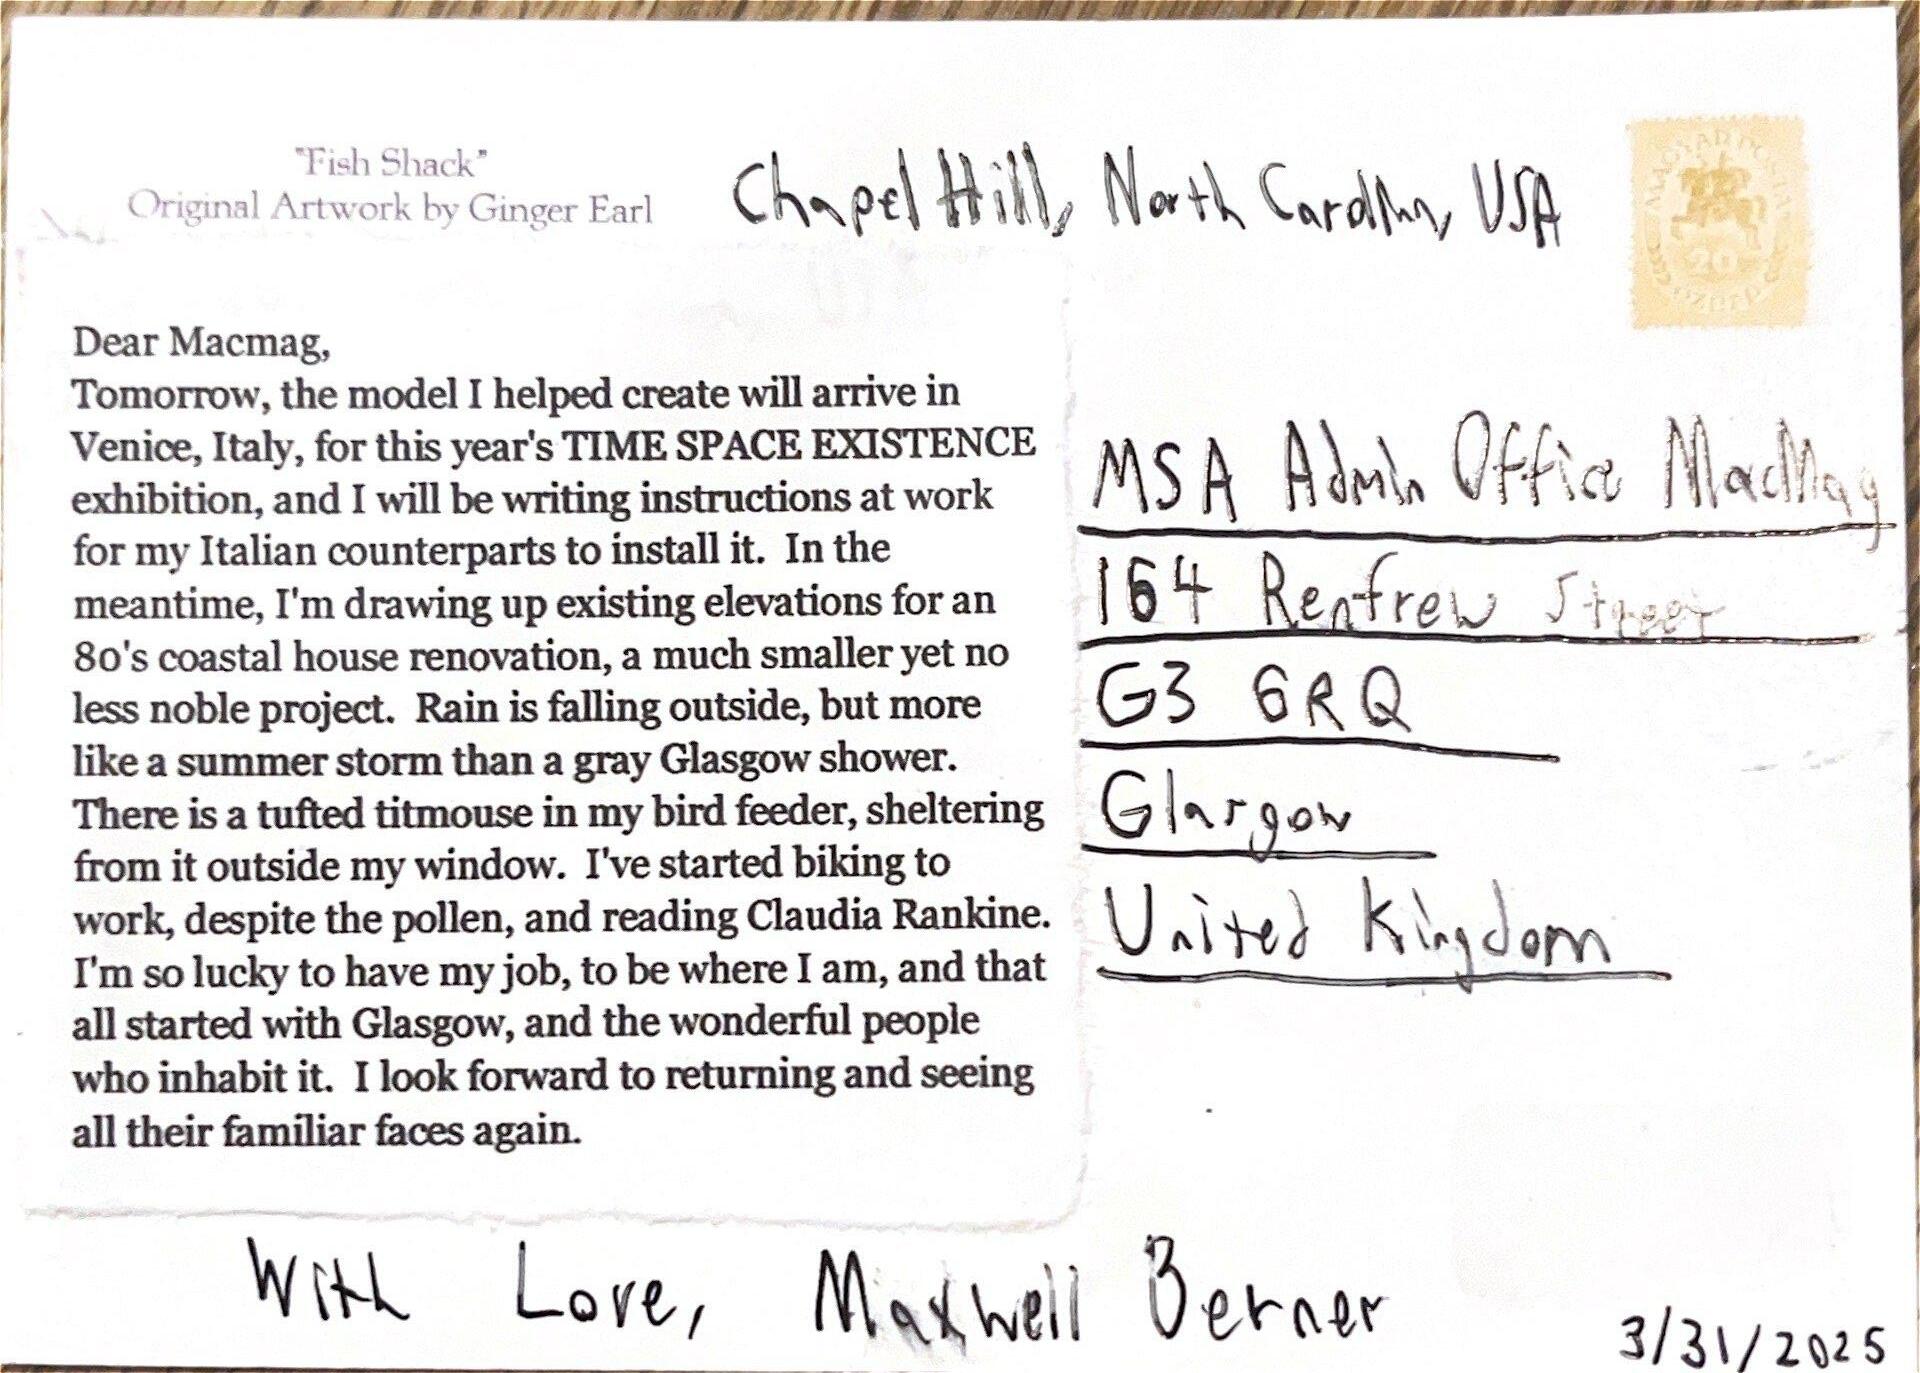 "Fish Shack"
Original Artwork by Ginger Earl
Chapel Hill, North Carolina, USA
MAGYAR POSTA
20
Dear Macmag,
Tomorrow, the model I helped create will arrive in
Venice, Italy, for this year's TIME SPACE EXISTENCE
exhibition, and I will be writing instructions at work
for my Italian counterparts to install it.  In the
meantime, I'm drawing up existing elevations for an
80's coastal house renovation, a much smaller yet no
less noble project.  Rain is falling outside, but more
like a summer storm than a gray Glasgow shower.
There is a tufted titmouse in my bird feeder, sheltering
from it outside my window.  I've started biking to
work, despite the pollen, and reading Claudia Rankine.
I'm so lucky to have my job, to be where I am, and that
all started with Glasgow, and the wonderful people
who inhabit it.  I look forward to returning and seeing
all their familiar faces again.
MSA Admin Office MacMag
164 Renfrew Street
G3 6RQ
Glasgow
United Kingdom
With Love, Maxwell Berner
3/31/2025